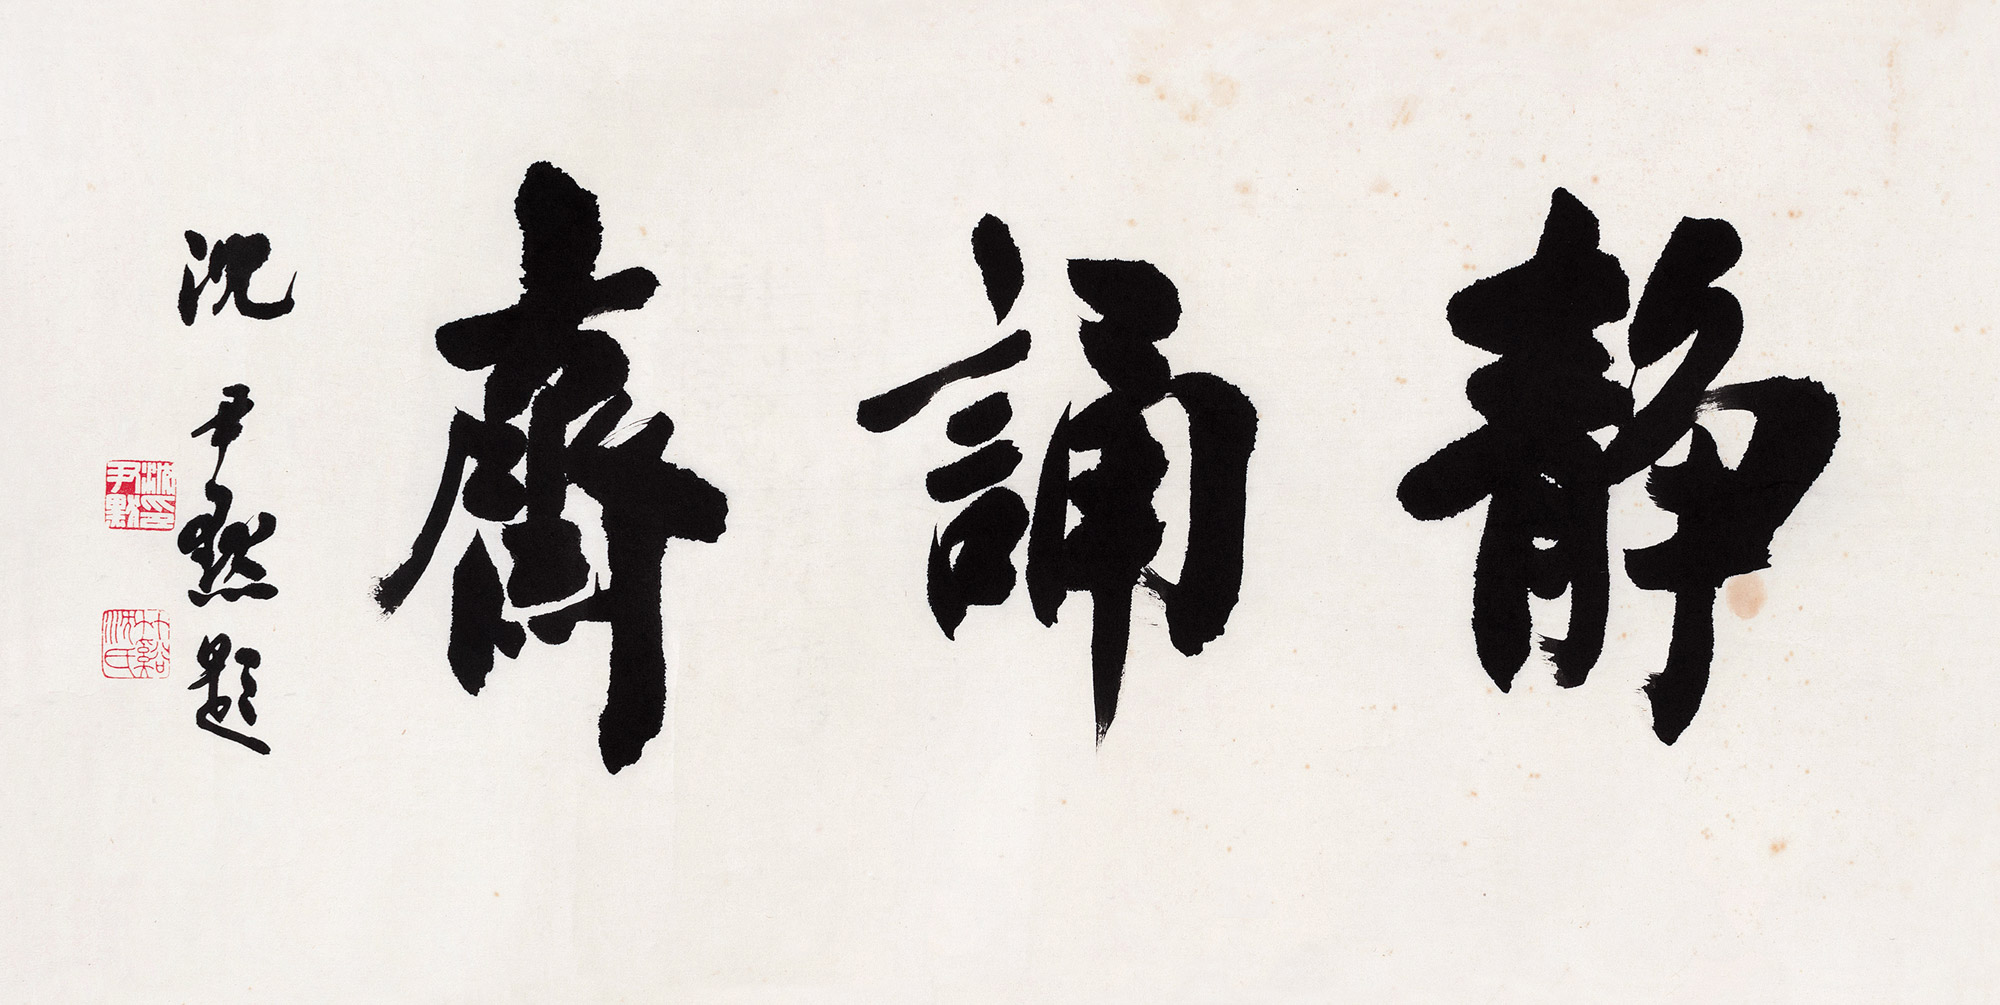 靜誦齋
沈尹默題
沈尹默印
竹谿沈氏